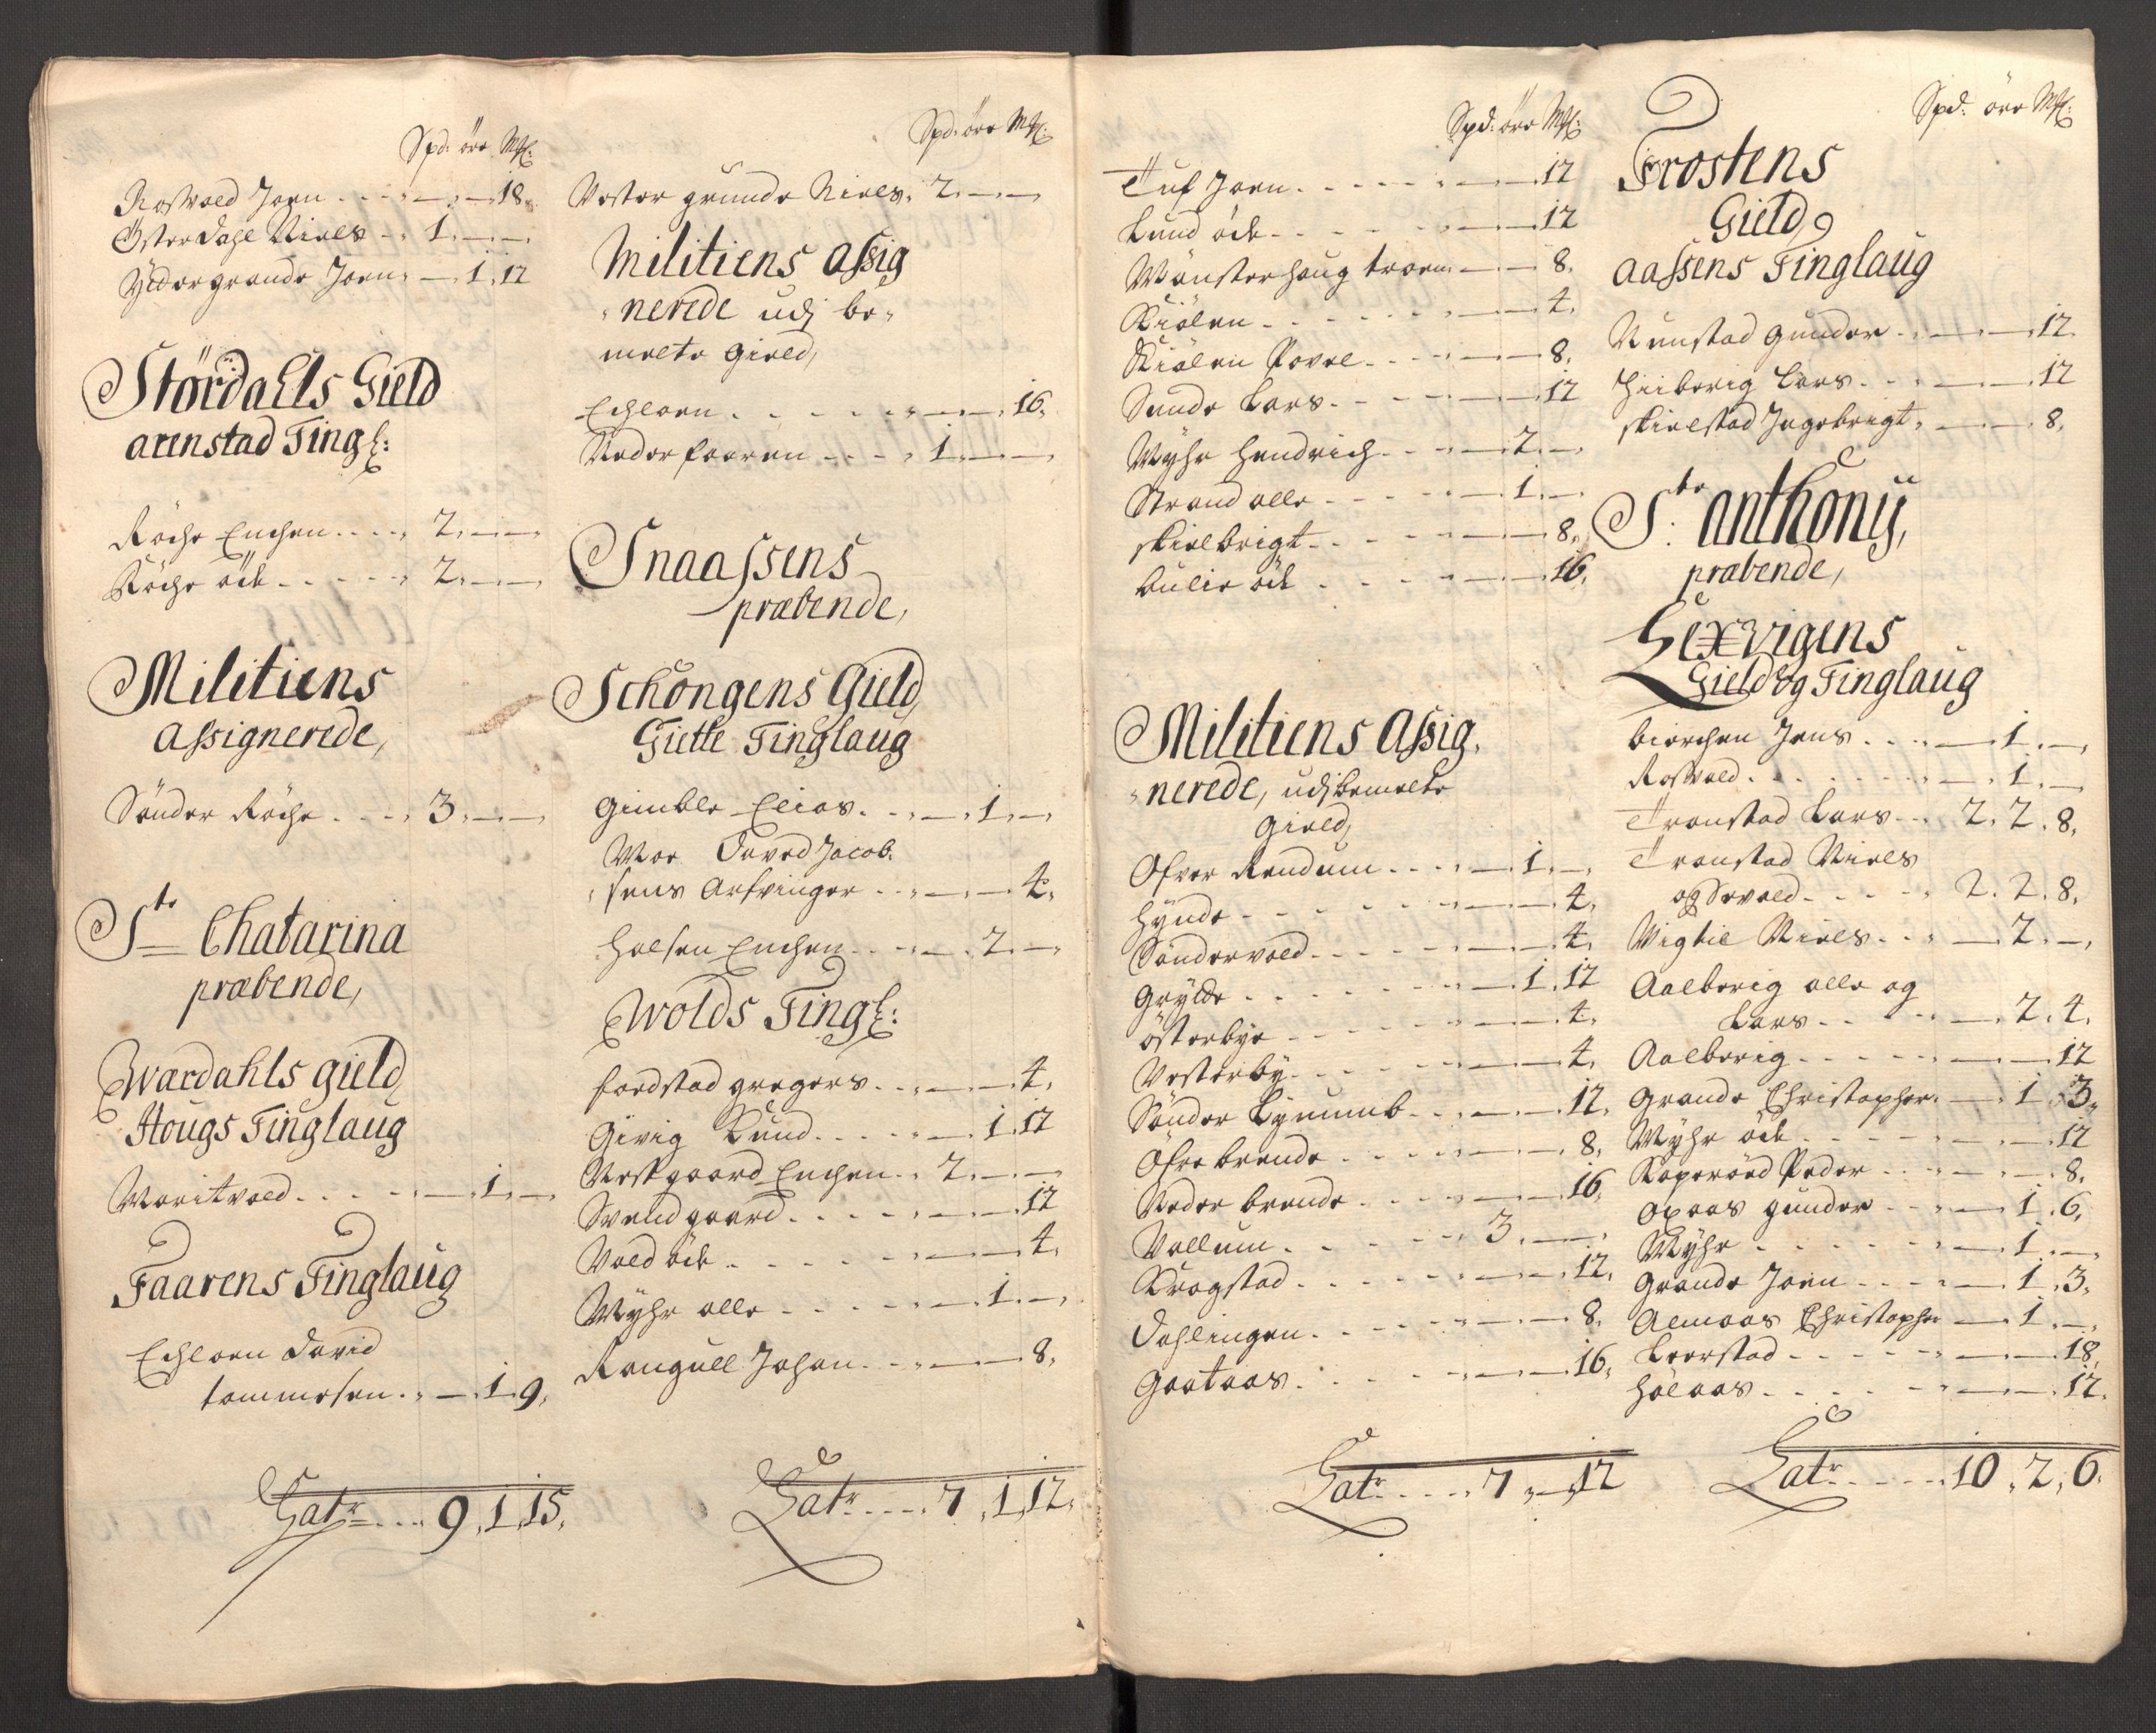 Spd: öre Mkl:
Rosvold Joen . . . — 18.
Österdahl Niels - . 1. — —
Ydergrande Joen. — 1. 12
Stördalls Gield
arenstad Tingl:
Röche Enchen . . . . 2. — —
Röche öde . . . . . 2. — —
Militiens
Assignerede,
Sönder Röche . . . . 3. — —
Ste Chatarina
præbende,
Wardahls gield
Hougs Tinglaug
Moritvold . . . . — 1. —
Faarens Tinglaug
Echloen David
tommesen . . — 1. 9.
Latr . . . . 9. 1. 15.
Spd: öre Mkl:
Vester grunde Niels. 2. — —
Militiens Assig
nerede udj be-
melte Gield,
Echloen . . . . . — — 16.
Nederfaaren . . . . 1. — —
Snaassens
præbende,
Schöngens Gield
Giette Tinglaug
Gimble Elias . . — 1. —
Moe David Jacob.
sens Arfvinger . . — — 4.
Halsen Enchen . . — 2. —
Wolds Tingl:
fordstad gregers . . — — 4.
Givig Lund . . . . — 1. 12
Vestgaard Enchen . . 2. — —
Svendgaard . . . . — — 12
Vold öde . . . . . — — 4.
Myhr olle . . . . — 1. —
Rangull Johan . . . — — 8.
Latr . . . . 7. 1. 12.
Spd: öre Mkl:
Tuf Joen . . . . . — — 12
Lund öde . . . . . — — 12
Mönsterhaug troen — — 8.
Kiölen . . . . . . — — 4.
Kiölen Povel . . . — — 8.
Sunde Lars . . . . — — 12
Myhr Hendrich . . . — 2. —
Strand olle . . . . — 1. —
skielbrigt . . . . — — 8.
Aulie öde . . . . — — 16.
Militiens Assig.
nerede, udj bemelte
Gield,
Ofver Rendum . . . — 1. —
Hynde . . . . . . — — 4.
Söndervold . . . . — — 4.
Grylde . . . . . . — 1. 12
österbye . . . . . — — 4.
Vesterby . . . . . — — 4.
Sönder Lynumb . . . — — 12.
Ofre brende . . . . — — 8.
Neder brende . . . . — — 16.
Vollum . . . . . . 3. — —
Krogstad . . . . . — — 12.
Dahlingen . . . . . — — 8.
Gaataas . . . . . — — 16.
Latr . . . . 7. — 12
Spd: öre Mkl:
Frostens
Gield,
aassens Tinglaug
Runstad gunder . . — — 12.
Hiiberig Lars . . . — — 12
skielstad Ingebrigt. — — 8.
Ste anthonij,
præbende,
Lexvigens
Gield og Tinglaug
biörchen Jens . . . — 1. —
Rosvold . . . . . — 1. —
Tronstad Lars . . . 2. 2. 8.
Tronstad Niels
og Sevold . . . . 2. 2. 8.
Vigtil Niels . . . — 2. —
Aalberig olle og
Lars . . . . — 2. 4.
Aalberig . . . . . — — 12
Grande Christopher. — 1. 3.
Myhr öde . . . . . — — 12
Kaperöed Peder . . . — — 8.
opaas gunder . . . — 1. 6.
Myhr . . . . . . — 1. —
Grande Joen . . . . — 1. 3.
Aemaas Christopher — 1. —
Leerstad . . . . . — — 18.
Hölaas . . . . . . — — 12.
Latr . . . . . 10. 2. 6.